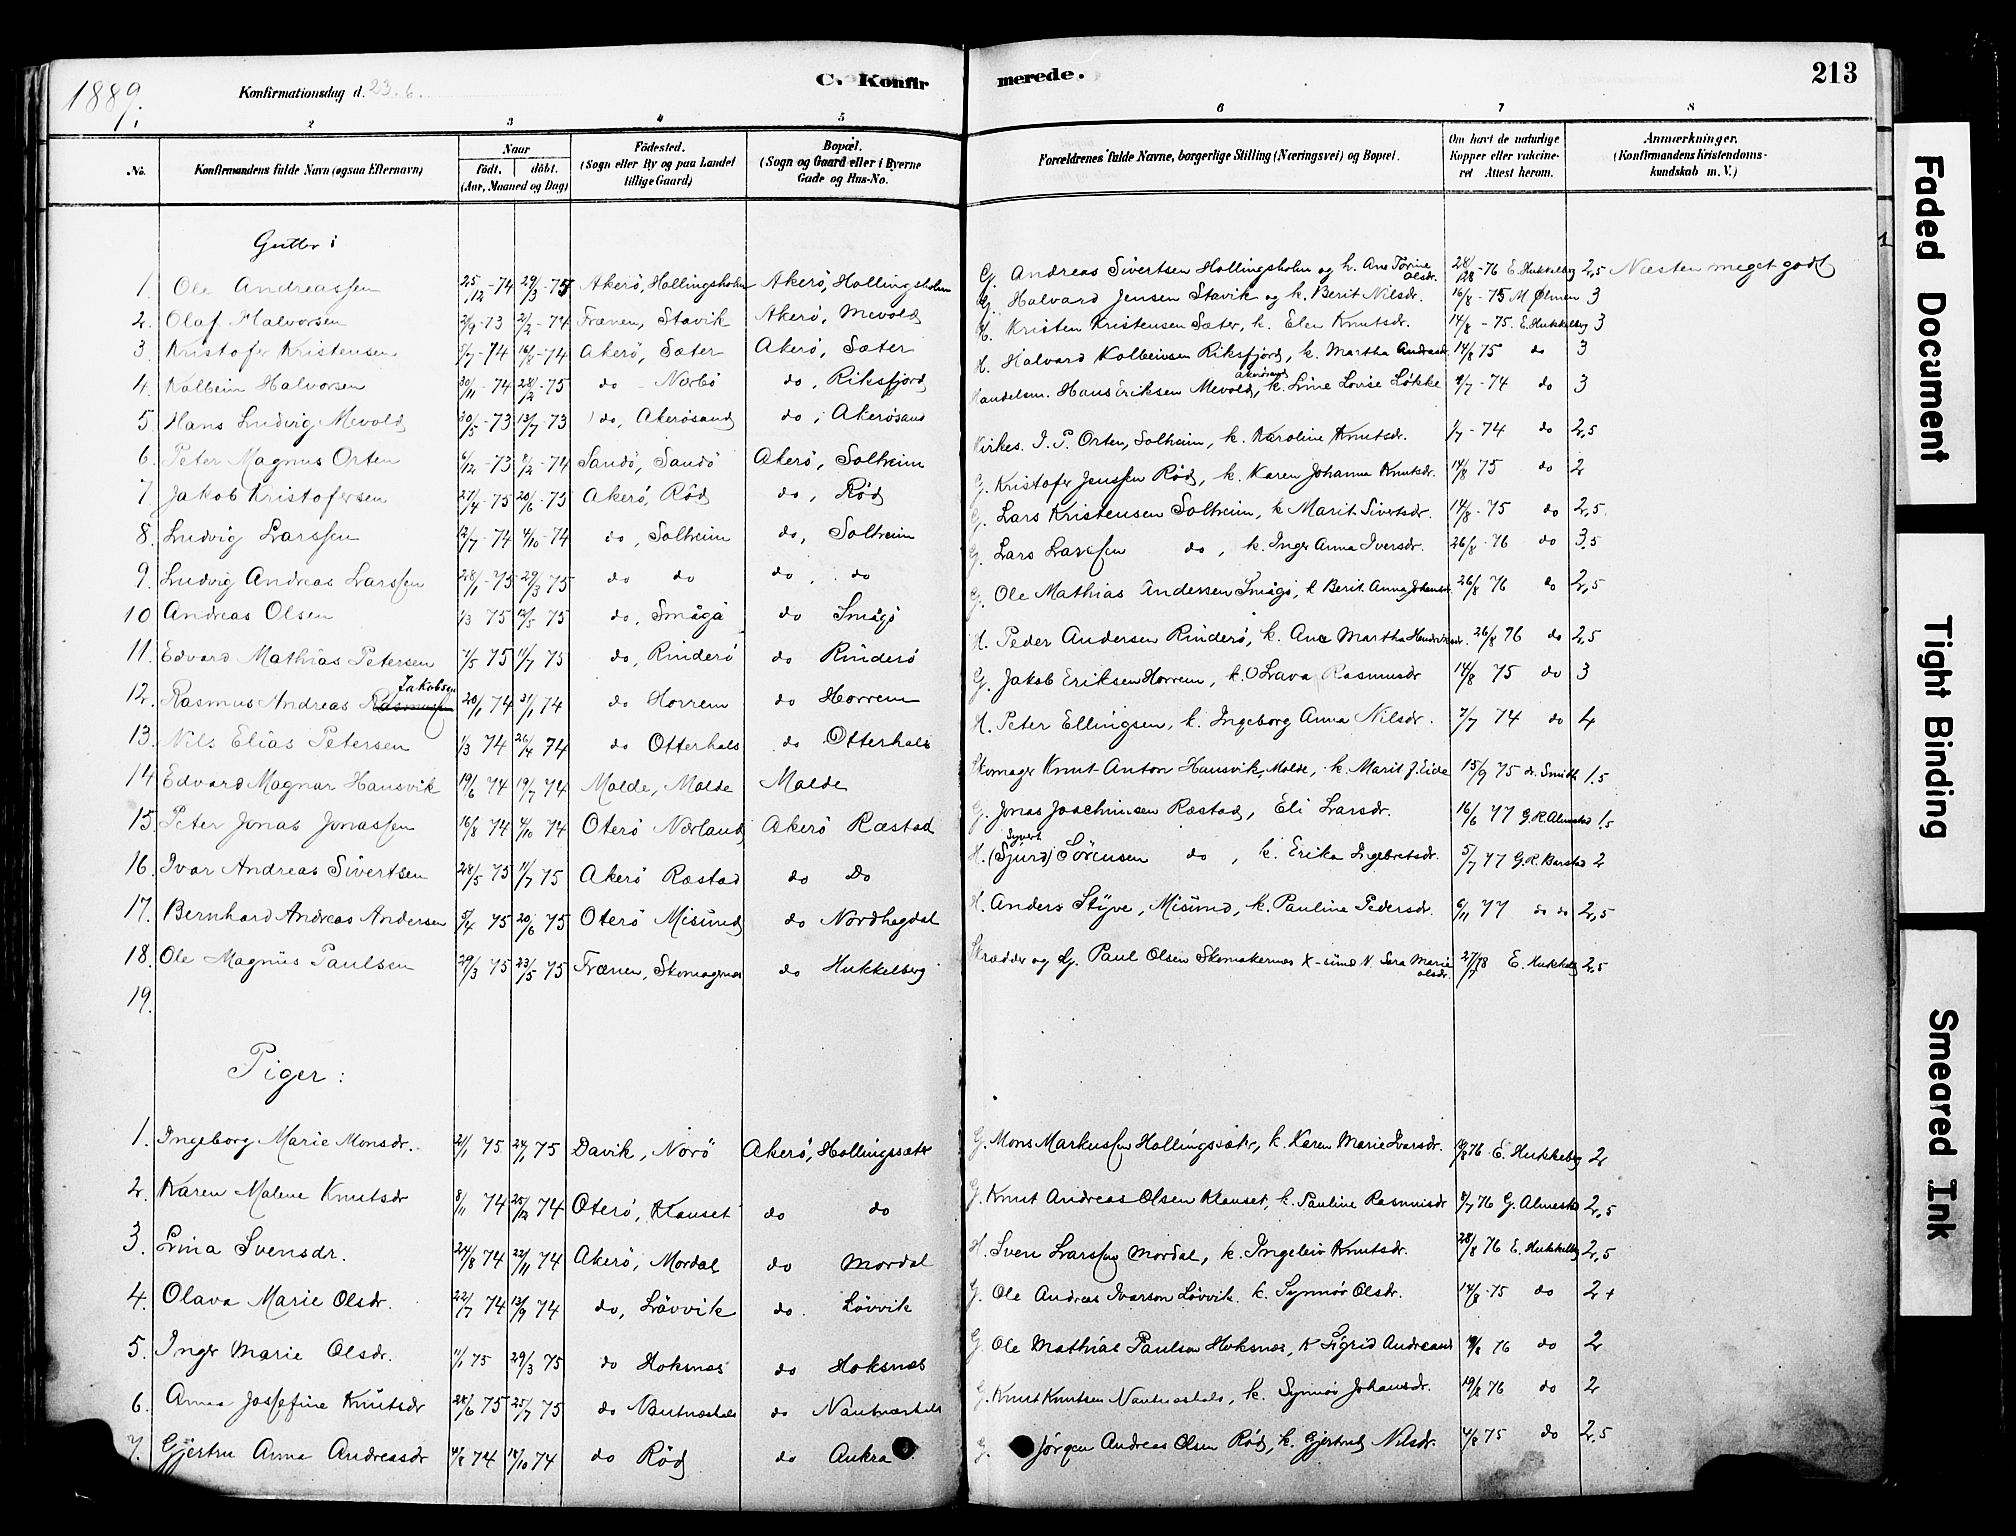 1889.
Konfirmationsdag d. 23. 6.
C. Konfir
merede.
213
1 2 3 4 5 6 7 8
No. Konfirmandens fulde Navn (ogsaa Efternavn) Naar födt. döbt. (Aar, Maaned og Dag) Födested. (Sogn eller By og paa Landet tillige Gaard) Bopæl. (Sogn og Gaard eller i Byerne Gade og Hus-No. Forældrenes fulde Navne, borgerlige Stilling (Næringsvei) og Bopæl. Om havt de naturlige Kopper eller vakcineret Attest herom. Anmærkninger. (Konfirmandens Kristendomskundskab m. V.)
Gutter:
1. Ole Andreassen 25/12-74 29/3-75 Akerö, Hollingsholm Akerö, Hollingsholm G. Andreas Sivertsen Hollingsholm og k. Ane Torine Olsdr. 28/8-76 E. Hukkelbg 2,5 Næsten meget godt
2. Olaf Halvorsen 2/9-73 2/2-74 Frænen, Stavik Akerö, Mevold G. Halvard Jensen Stavik og k. Berit Nilsdr. 16/8-75 M. Ølmen 3
3. Kristofer Kristensen 5/7-74 16/8-74 Akerö, Sæter Akerö, Sæter H. Kristen Kristensen Sæter, k. Elen Knutsdr. 14/8-75. E. Hukkelbg 3
4. Kolbein Halvorsen 30/11-74 28/2-75 do - Norbö do, Riksfjord H. Halvard Kolbeinsen Riksfjord, k. Martha Andrasdr. 14/8 75 do 3
5. Hans Ludvig Mevold 30/5-73 13/7-73 do, Akerösand do, Akerösand Handelsm. Hans Eriksen Mevold, Akerösand k. Line Lovise Løkke 4/7-74 do 3
6. Peter Magnus Orten 6/12-73 8/2-74 Sandö, Sandö Akerö, Solheim Kirkes. I. P. Orten, Solheim, k. Karoline Knutsdr. 1/7-74 do 2,5
7. Jakob Kristofersen 27/4-75 20/6-75 Akerö, Röd do, Röd G. Kristofer Jenssen Röd, k. Karen Johanna Knutsdr. 14/8 75 do 2
8. Ludvig Larssen 12/7-74 4/10-74 do, Solheim do, Solheim G. Lars Kristensen Solheim, k Marit Sivertsdr. 14/8-75 do 2,5
9. Ludvig Andreas Larssen 28/1-75 29/3 75 do do do. do G. Lars Larssen do, k. Inger Anna Iversdr. 26/8-76 do 3,5
10 Andreas Olsen 1/3 75 12/5 75 do, Smågå do Smågö G. Ole Mathias Andersen Smågö, k Berit Anna Johansdr. 26/8 76 do 2,5
11. Edvard Mathias Petersen 7/5 75 11/7 75 do, Rinderö do Rinderö H. Peder Andersen Rinderö, k. Ane Martha Hendriksdr. 26/8 76 do 2,5
12. Rasmus Andreas Rasmussen Jakobsen 20/1 74 31/1 74 do Horrem do Horrem G. Jakob Eriksen Horrem, k. Olava Rasmusdr 14/8 75 do 3
13. Nils Elias Petersen 1/3 74 26/4 74 do Otterhals do Otterhals H. Peter Ellingsen, k. Ingeborg Anna Nilsdr. 7/7 74 do 4
14 Edvard Magnar Hansvik 19/6 74 19/7 74 Molde, Molde Molde Skomager Knut Anton Hansvik, Molde, k. Marit J. Eide 15/9 75 dr. Smith 1.5
15. Peter Jonas Jonassen 16/8 74 4/10 74 Oterö Norland Akerö Ræstad G. Jonas Joachimsen Ræstad, Eli Larsdr. 16/6 77 G. R. Almestad 1.5
16. Ivar Andreas Sivertsen 28/5 75 11/7 75 Akerö Ræstad do Do H. (Sjurd) Syvert Sörensen do, k. Erika Ingebretsdr. 5/7 77 G. R. Barstad 2
17. Bernhard Andreas Andersen 5/4 75 20/6 75 Oterö Misund do Nordhegdal H. Anders Styve, Misund, k. Pauline Pedersdr. 6/11 77 do do 2,5
18. Ole Magnus Paulsen 29/3 75 23/5 75 Frænen, Skomagernes do Hukkelberg Skrædder og G. Paul Olsen Skomakernes K-sund k. Sara Marie Olsdr. 27/7 78 E. Hukkelbg 2,5
19.
Piger:
1. Ingeborg Marie Monsdr. 21/1 75 24/1 75 Davik, Norö Akerö, Hollingssæter G. Mons Markussen Hollingssæter, k. Karen Marie Ivarsdr. 19/8 76 E. Hukkelbg 2
2. Karen Malene Knutsdr 8/11 74 25/12 74 Oterö, Klauset do do G. Knut Andreas Olsen Klauset, k. Pauline Rasmusdr 8/7 76 G. Almestad 2,5
3. Lina Svensdr. 24/8 74 22/11 74 Akerö, Mordal do Mordal H. Sven Larssen Mordal, k. Ingeleiv Knutsdr. 28/8 76 E. Hukkelbg 2,5
4. Olava Marie Olsdr. 22/7 74 13/9 74 do, Lövvik do. Lövvik G. Ole Andreas Ivarson Lövvik k. Synnör Olsdr. 14/8-75 do 2+
5. Inger Marie Olsdr. 11/1 75 29/3 75 do Hoksnes do Hoksnæs G. Ole Mathias Paulson Hoksnæs, k Sigrid Andreasd 19/8 76 do 2
6. Anna Jossefine Knutsdr 28/6 75 25/7 75 do Nautneshals do Nautneshals G. Knut Knutsen Nautneshals, k. Synnör Johansdr. 19/8 76 do 2
7. Gjertru Anna Andreasdr 4/8 74 18/10 74 do Röd do Aukra G. Jörgen Andreas Olsen Röd, k. Gjertrud Nilsdr. 4/8 75 do 2,5
Faded Document
Tight Binding
Smeared Ink